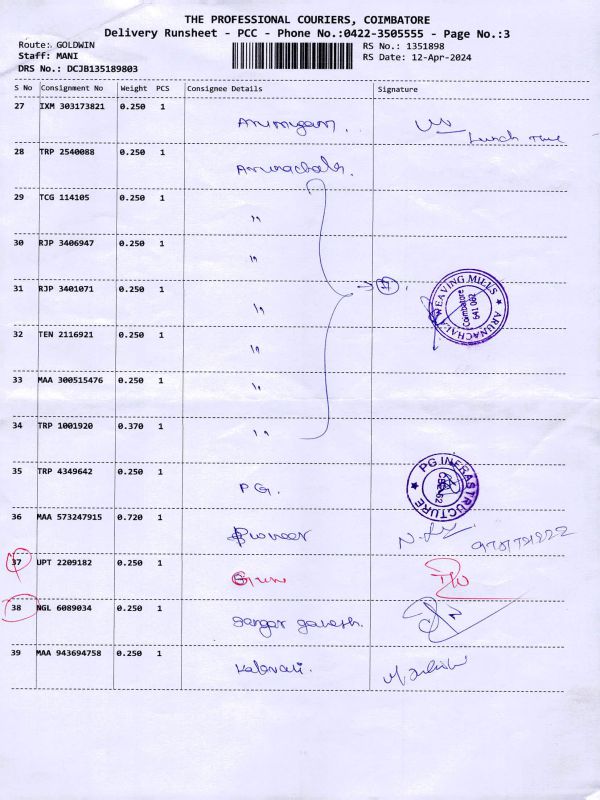 THE PROFESSIONAL COURIERS, COIMBATORE
Delivery Runsheet - PCC - Phone No.:0422-3505555 - Page No.:3
Route: GOLDWIN RS No.: 1351898
Staff: MANI RS Date: 12-Apr-2024
DRS No.: DCJB135189803
S No Consignment No Weight PCS Consignee Details Signature
27 IXM 303173821 0.250 1 Arumugam.
Lunch Time
28 TRP 2540088 0.250 1 Arunachala.
29 TCG 114105 0.250 1 "
30 RJP 3406947 0.250 1 "
31 RJP 3401071 0.250 1 "
ARUNACHALA WEAVING MILLS
Coimbatore
641 062
32 TEN 2116921 0.250 1 "
33 MAA 300515476 0.250 1 "
34 TRP 1001920 0.370 1 "
35 TRP 4349642 0.250 1 PG.
PG INFRASTRUCTURE
36 MAA 573247915 0.720 1 Pioneer
37 UPT 2209182 0.250 1
38 NGL 6089034 0.250 1 ganesh.
39 MAA 943694758 0.250 1 Kalavati.